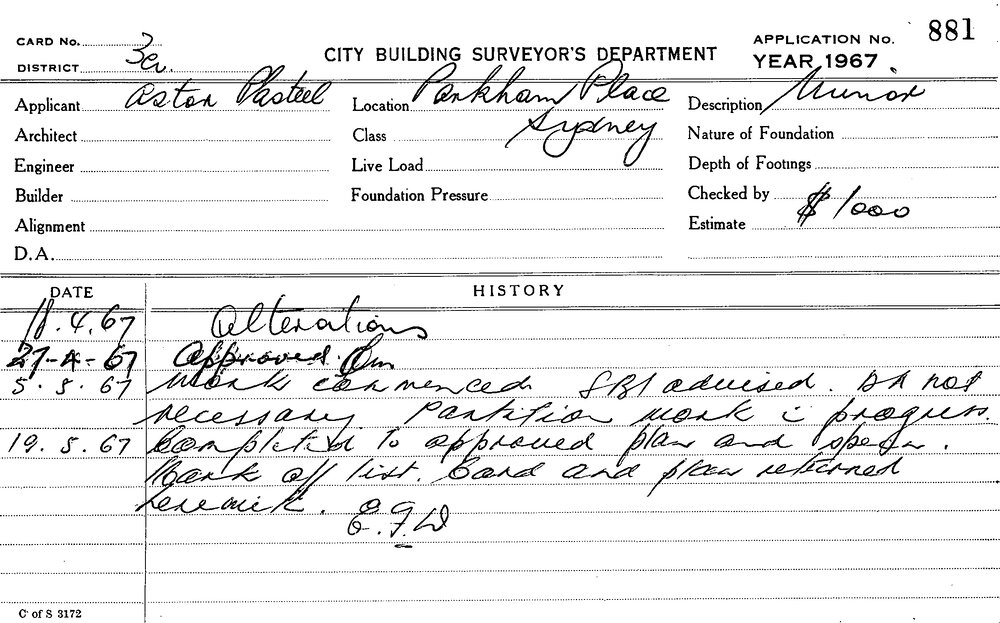 881
CARD No. 3a.
DISTRICT
CITY BUILDING SURVEYOR'S DEPARTMENT
APPLICATION No.
YEAR 1967
Applicant Aston Pasteel Location Parkham Place Description Minor
Architect Class Sydney Nature of Foundation
Engineer Live Load Depth of Footings
Builder Foundation Pressure Checked by
Alignment Estimate $1000
D.A.
DATE HISTORY
18.4.67 Alterations
27-4-67 Approved.
5.5.67 Work commenced SBI advised. DA not
necessary. Partition work i progress.
19.5.67 Completed to approved plan and specn.
Mark off list. Card and plan returned
herewith. E.F.W
C of S 3172